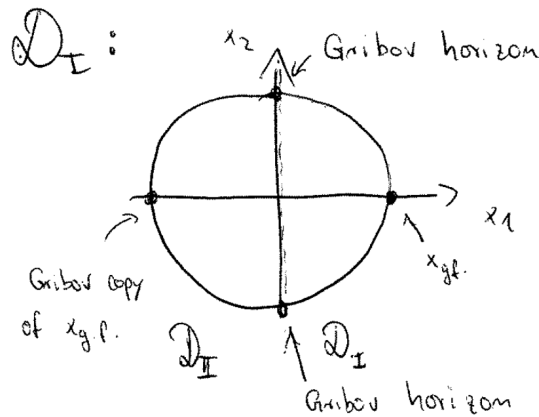 D_I :
x_2
Gribov horizon
x_1
x_gf.
Gribov copy
of x_g.f.
D_II
D_I
Gribov horizon